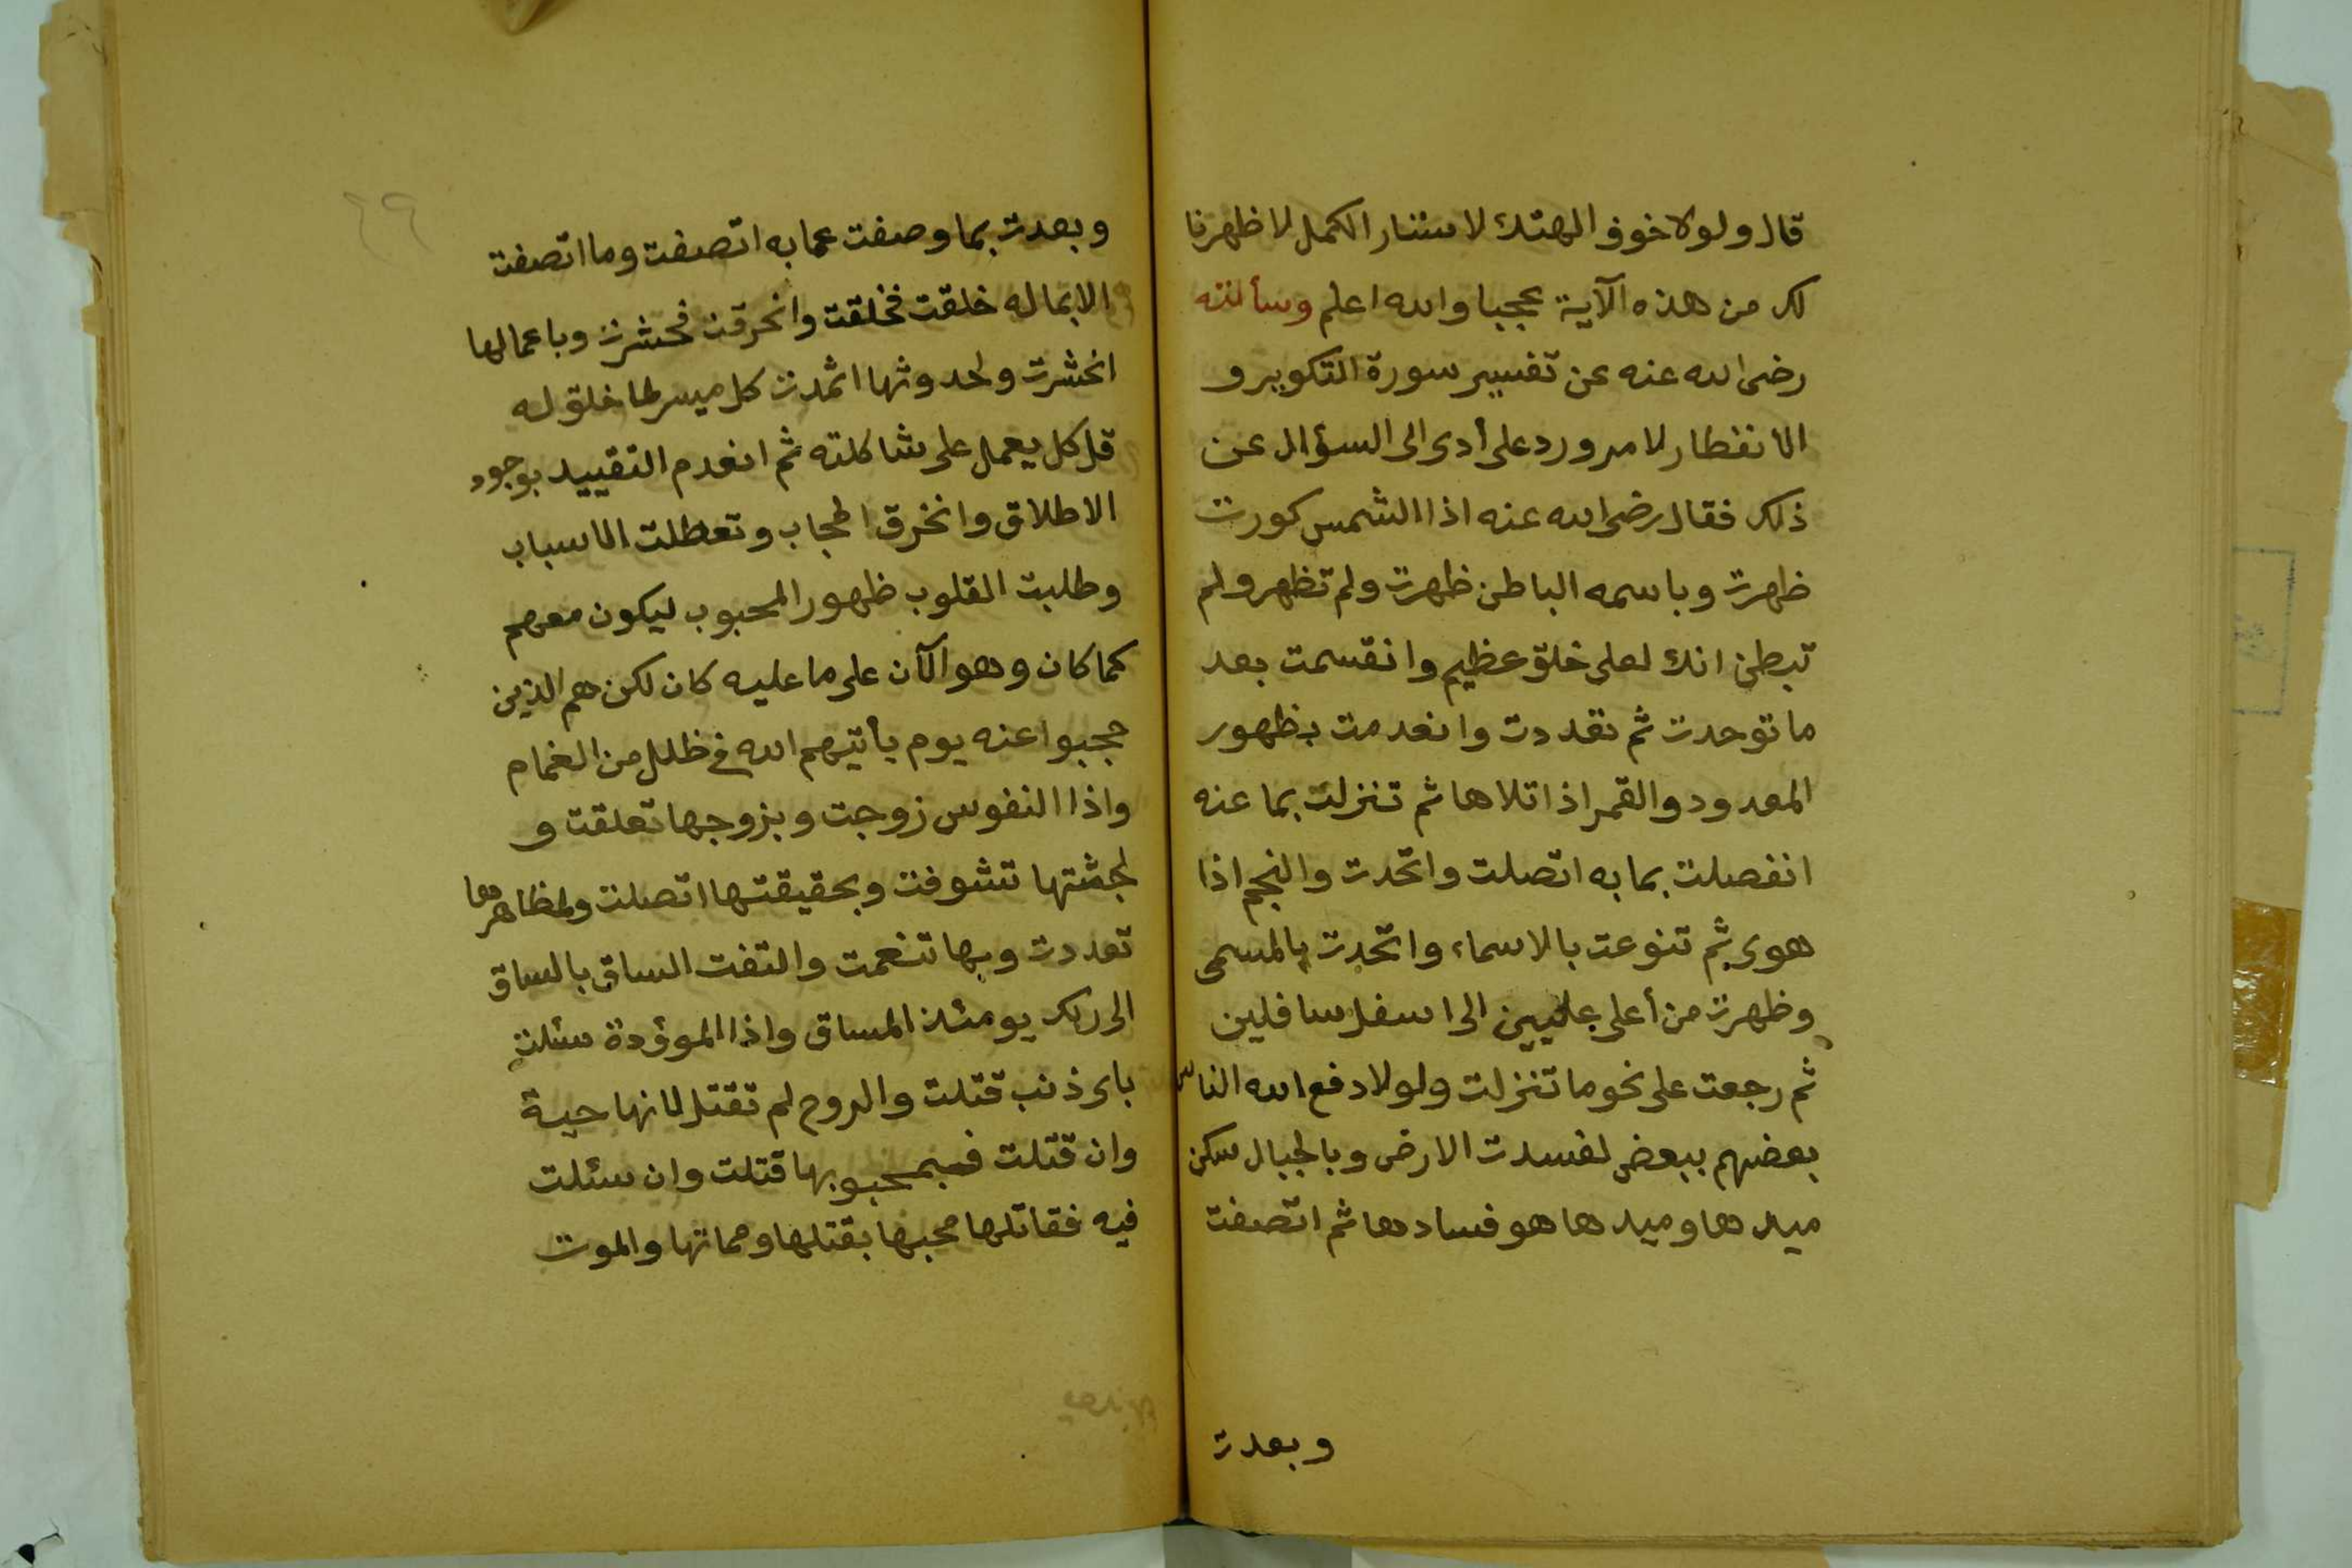 قال ولولا خوف الهتك لاستار الكمل لاظهرنا
لك من هذه الآية عجبا والله اعلم وسألته
رضى الله عنه عن تفسير سورة التكوير و
الانفطار لامر ورد على أدى الى السؤال عن
ذلك فقال رضى الله عنه اذا الشمس كورت
ظهرت وباسمه الباطن ظهرت ولم تظهر ولم
تبطن انك لعلى خلق عظيم وانقسمت بعد
ما توحدت ثم تعددت وانعدمت بظهور
المعدود والقمر اذا تلاها ثم تنزلت بما عنه
انفصلت بما به اتصلت واتحدت والنجم اذا
هوى ثم تنوعت بالاسماء واتحدت بالمسمى
وظهرت من أعلى عليين الى اسفل سافلين
ثم رجعت على نحو ما تنزلت ولولا دفع الله الناس
بعضهم ببعض لفسدت الارض وبالجبال سكن
ميدها وميدها هو فسادها ثم اتصفت
وبعدت
٦٩
وبعدت بما وصفت عما به اتصفت وما اتصفت
الا بما له خلقت فخلقت وانحرقت فحشرت وباعمالها
انحشرت ولحدوثها اثمدت كل ميسر لما خلق له
قل كل يعمل على شاكلته ثم انعدم التقييد بوجود
الاطلاق وانخرق الحجاب وتعطلت الاسباب
وطلبت القلوب ظهور المحبوب ليكون معهم
كما كان وهو الآن على ما عليه كان لكن هم الذين
حجبوا عنه يوم يأتيهم الله فى ظلل من الغمام
واذا النفوس زوجت وبزوجها تعلقت و
لجثتها تشوفت وبحقيقتها اتصلت ولمظاهرها
تعددت وبها تنعمت والتفت الساق بالساق
الى ربك يومئذ المساق واذا الموؤدة سئلت
باى ذنب قتلت والروح لم تقتل لانها حية
وان قتلت فبمحبوبها قتلت وان سئلت
فيه فقاتلها محبها بقتلها ومماتها والموت